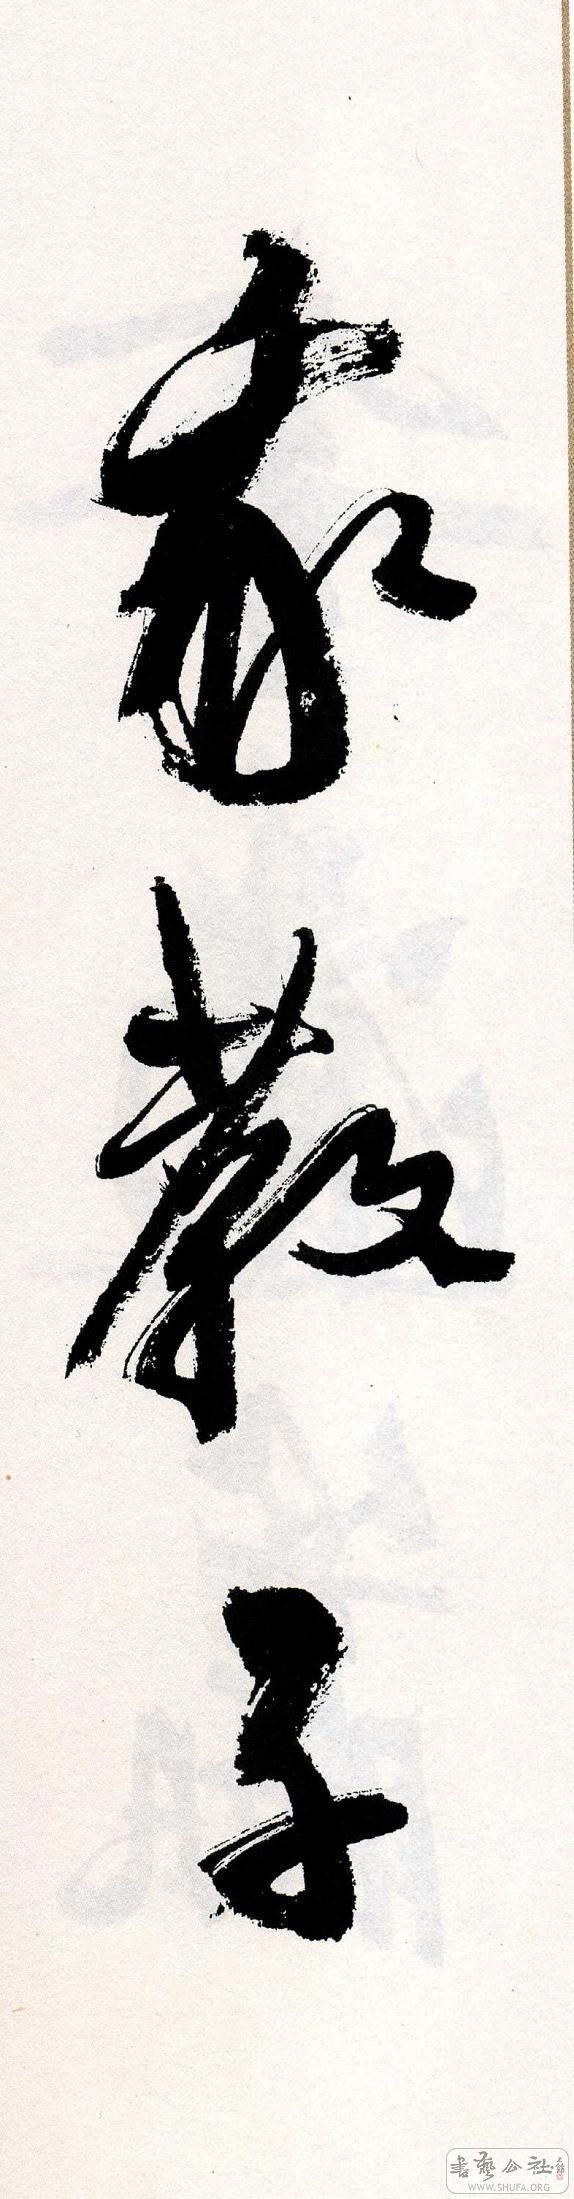 家教子
書藝公社
WWW.SHUFA.ORG